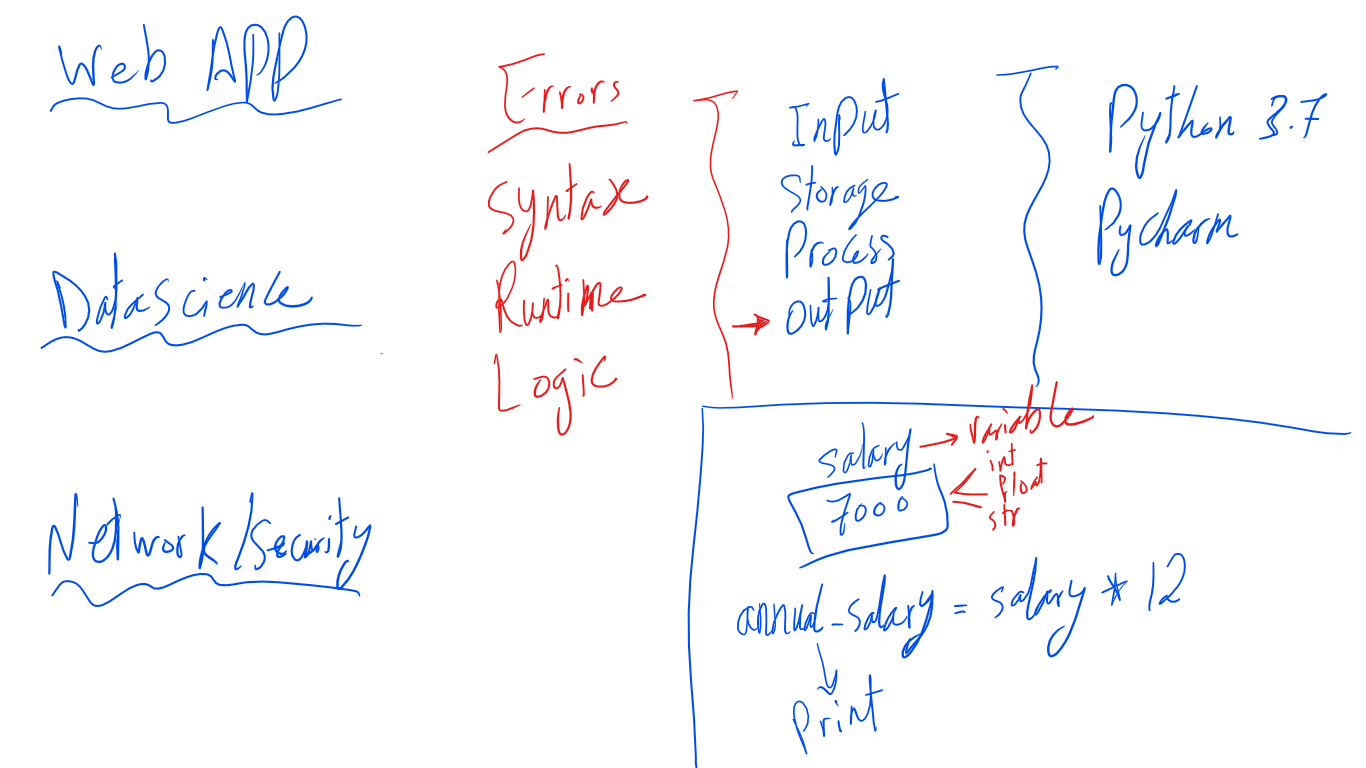 Web APP
Datascience
Network/Security
Errors
Syntax
Runtime
Logic
InPut
Storage
Process
outPut
Python 3.7
Pycharm
salary → variable
7000
int
float
str
annual_salary = salary * 12
print